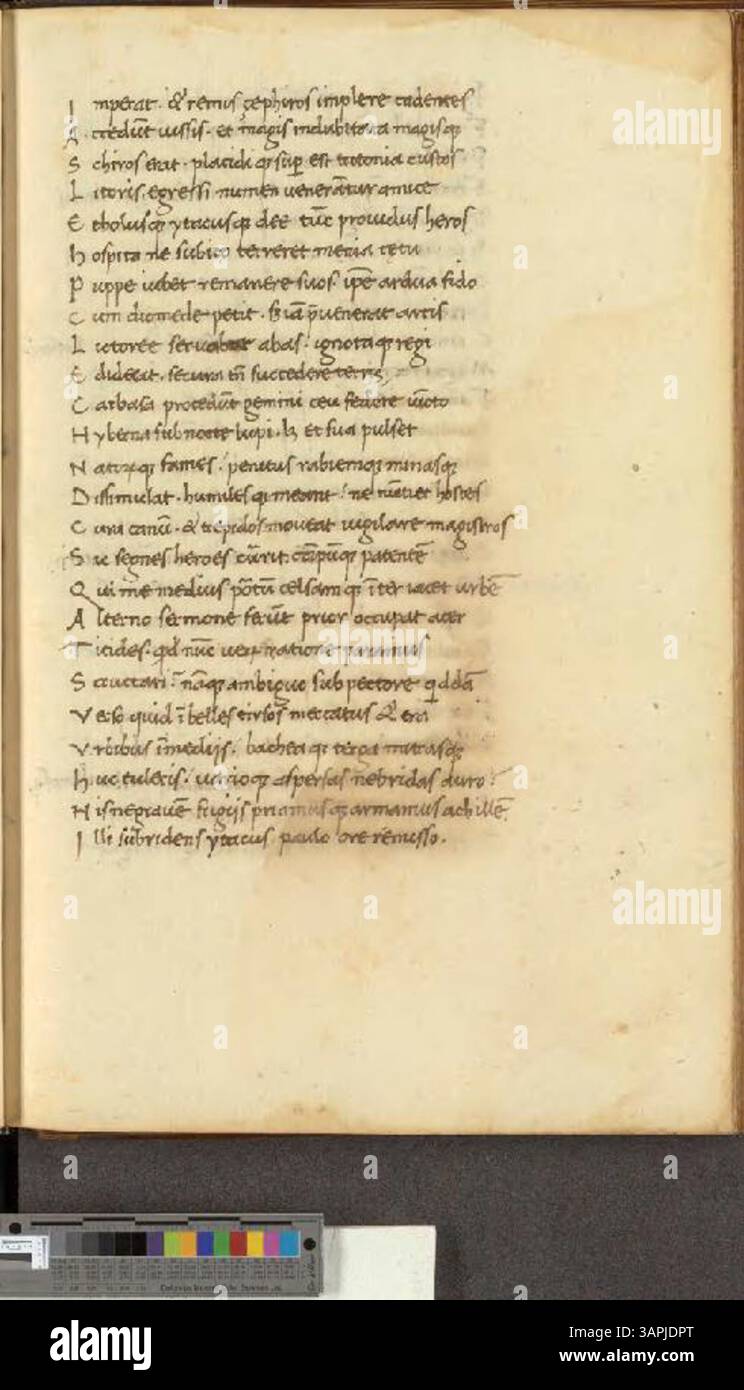 I mperat. & remis zephiros implere cadentes
A ccedũt iussis. et magis indubitata magisq;
S chiros erat. placidi q; suꝑ est tritonia custos
L itoris. egressi numen venerãtur amice
E tholusq; ytacusq; dee tũc prouidus heros
h ospita ne subito terreret menia cetu
P uppe iubet remanere suos. ip̃e ardua fido
C um diomede petit. s; iã p̃venerat arcis
L ictoree servator abas. ignota q; regi
E diderat. secura tñ succedere terris
C arbasa procedũt gemini ceu federe iũcto
H yberna sub nocte lupi. l; et sua pulset
N atorq; fames. penitus rabiemq; minasq;
D issimulat. humiles q; meant. ne nũtiet hostes
C ura canũ. & trepidos moueat uigilare magistros
S ic segnes heroes cũrit. cãpũq; patentẽ
Q ui me medius portũ celsamq; ĩter iacet urbẽ
A lterno sermone ferũt prior occupat acer
T itides. qd nũc
S cructari. nãq; ambiguo sub pectore q̃dã
V erso quid ĩbelles tirsos mercatus & era
V rbibus ĩ medijs. bachea q; terga mitrasq;
h uc tuleris. varioq; aspersas nebridas auro
N is ne grauẽ frigijs priamusq; armamus achillẽ
I lli subridens ytacus paulo ore remisso.
a
alamy
a
a
a
a
a
a
alamy
a
a
a
alamy
a
a
a
a
a
a
a
alamy
Image ID: 3APJDPT
www.alamy.com